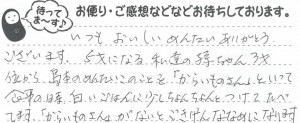 待ってま〜す♪
お便り・ご感想などなどお待ちしております。
いつも おいしい めんたい ありがとう
ございます。 5才になる 私達の 孫ちゃん 3才
位から、 のめんたいこのことを「からいものさん」といって
食事の時、白いごはんに少しちょんちょんとつけて たべ
てます。「からいものさん」が ないと、ごきげんななめになります